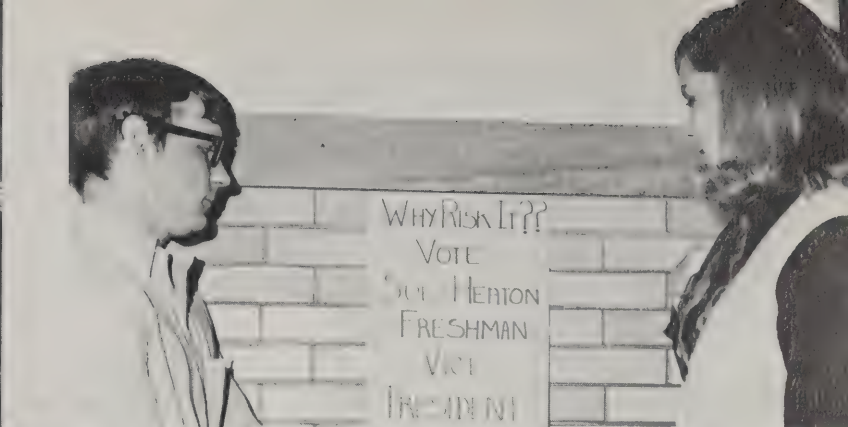 WHY RISK IT??
VOTE
SUE HEATON
FRESHMAN
VICE
PRESIDENT